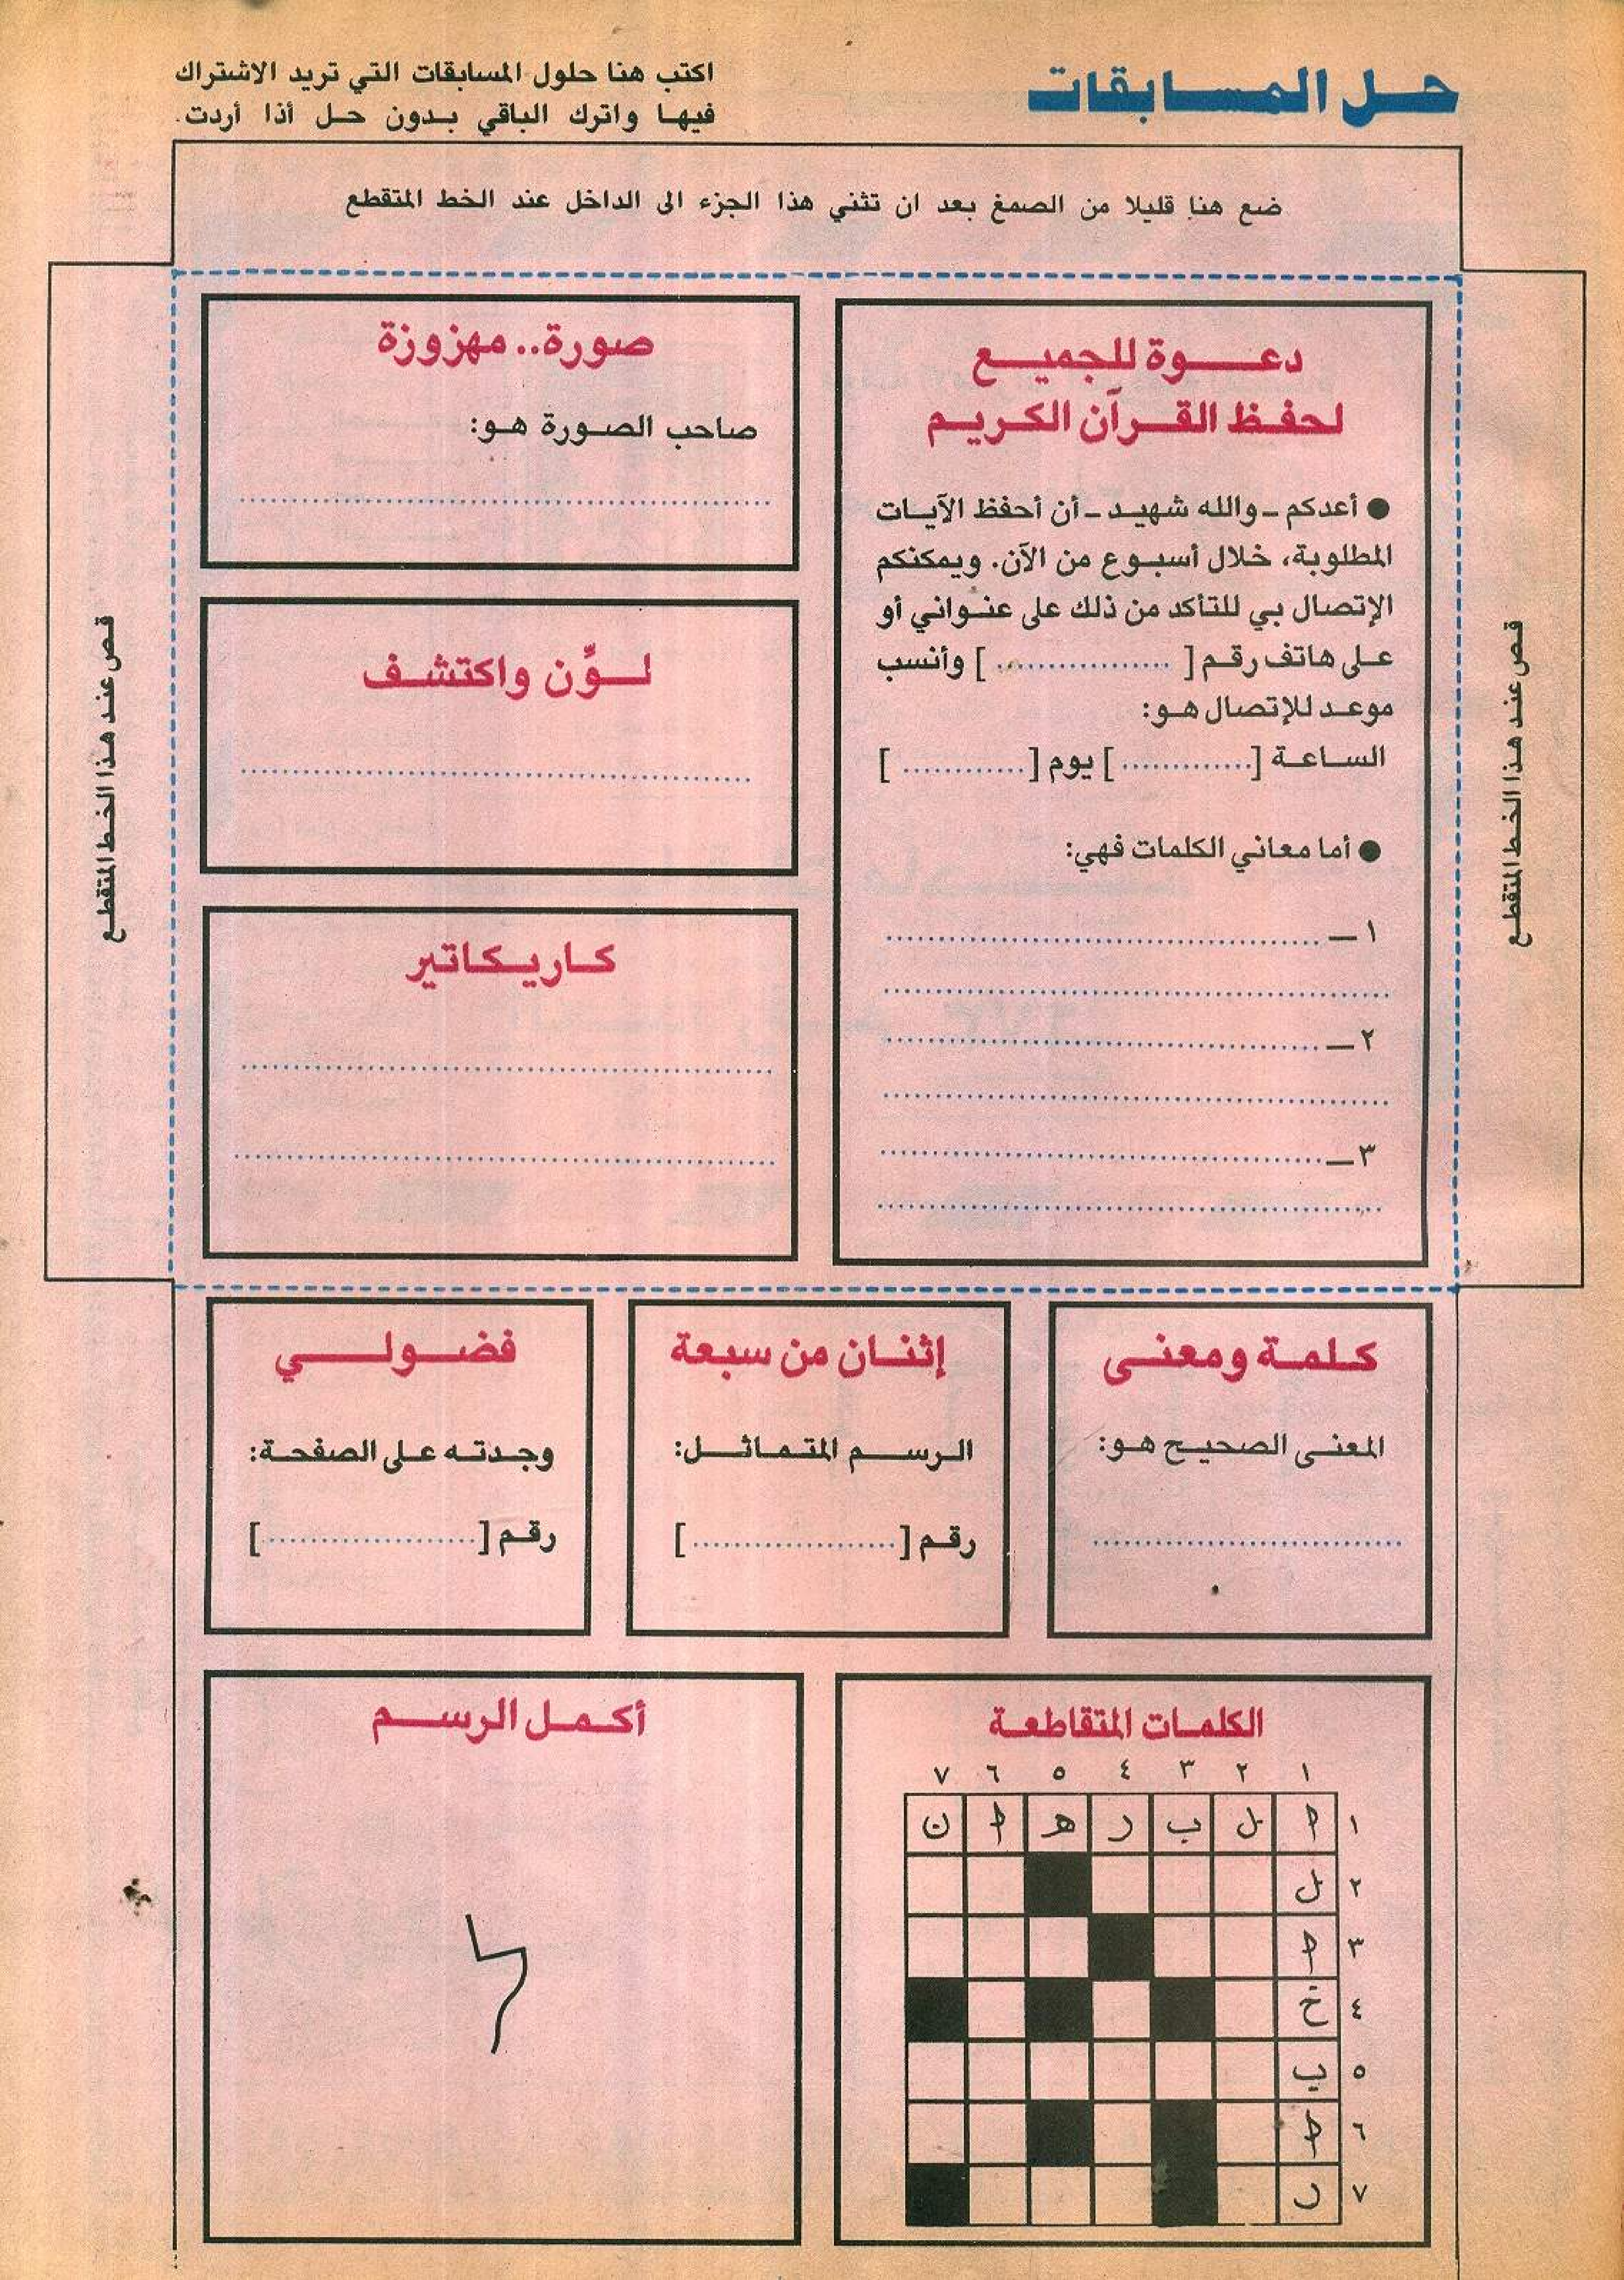 حل المسابقات
اكتب هنا حلول المسابقات التي تريد الاشتراك
فيها واترك الباقي بدون حل أذا أردت.
ضع هنا قليلا من الصمغ بعد ان تثني هذا الجزء الى الداخل عند الخط المتقطع
قص عند هذا الخط المتقطع
دعوة للجميع
لحفظ القرآن الكريم
● أعدكم ـ والله شهيد ـ أن أحفظ الآيات
المطلوبة، خلال أسبوع من الآن. ويمكنكم
الإتصال بي للتأكد من ذلك على عنواني أو
على هاتف رقم [ ................. ] وأنسب
موعد للإتصال هو:
الساعة [.............] يوم [............. ]
● أما معاني الكلمات فهي:
١ ـ
٢ ـ
٣ ـ
صورة.. مهزوزة
صاحب الصورة هو:
لوِّن واكتشف
كاريكاتير
قص عند هذا الخط المتقطع
كلمة ومعنى
المعنى الصحيح هو:
إثنان من سبعة
الرسم المتماثل:
رقم [....................]
فضولي
وجدته على الصفحة:
رقم [....................]
الكلمات المتقاطعة
١ ٢ ٣ ٤ ٥ ٦ ٧
١ ا ل ب ر ه ا ن
٢ ل
٣ ا
٤ خ
٥ ب
٦ ا
٧ ر
أكمل الرسم